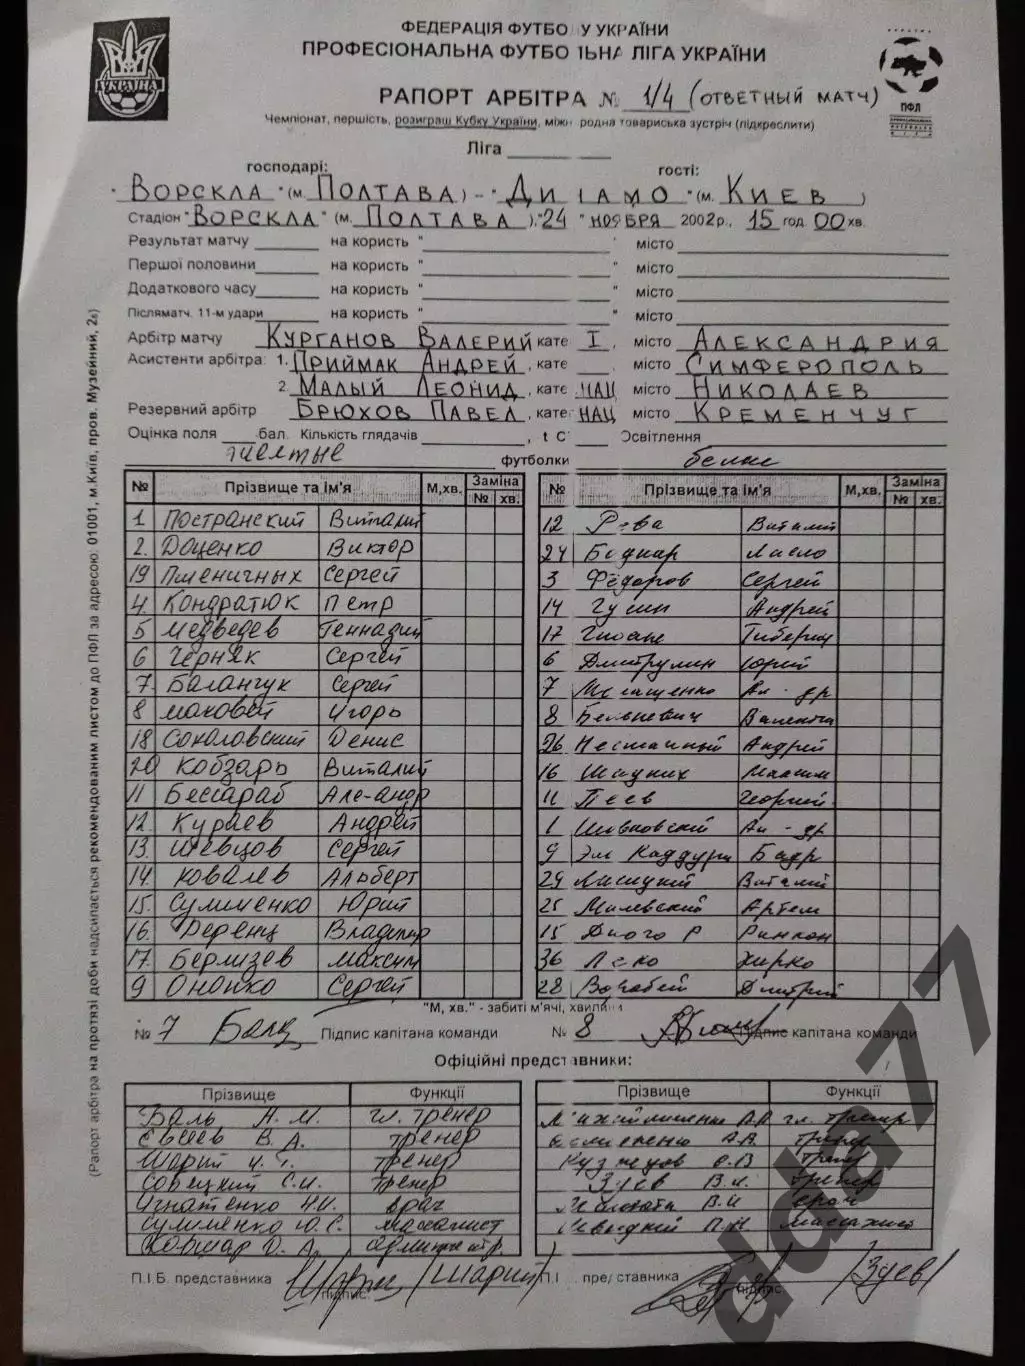 УКРАЇНА
ФЕДЕРАЦІЯ ФУТБОЛУ УКРАЇНИ
ПРОФЕСІОНАЛЬНА ФУТБОЛЬНА ЛІГА УКРАЇНИ
ПФЛ
РАПОРТ АРБІТРА № 1/4 (ОТВЕТНЫЙ МАТЧ)
Чемпіонат, першість, розиграш Кубку України, міжнародна товариська зустріч (підкреслити)
Ліга
господарі: гості:
"ВОРСКЛА" (м. ПОЛТАВА) - "ДИНАМО" (м. КИЕВ)
Стадіон "ВОРСКЛА" (м. ПОЛТАВА), "24" НОЯБРЯ 2002р., 15 год 00 хв.
Результат матчу на користь " місто
Першої половини на користь " " місто
Додаткового часу на користь " місто
Післяматч. 11-м удари на користь " місто
Арбітр матчу КУРГАНОВ ВАЛЕРИЙ кате I, місто АЛЕКСАНДРИЯ
Асистенти арбітра: 1. ПРИЙМАК АНДРЕЙ, кате місто СИМФЕРОПОЛЬ
2. МАЛЫЙ ЛЕОНИД, кате НАЦ місто НИКОЛАЕВ
Резервний арбітр БРЮХОВ ПАВЕЛ, кате НАЦ місто КРЕМЕНЧУГ
Оцінка поля бал. Кількість глядачів , t С Освітлення
желтые футболки белые
№ Прізвище та ім'я М,хв. Заміна № хв. № Прізвище та ім'я М,хв. Заміна № хв.
1 Постранский Виталий 12 Рева Виталий
2. Доценко Виктор 24 Боднар Ласло
19 Пшеничных Сергей 3 Фёдоров Сергей
4. Кондратюк Петр 14 Гусин Андрей
5 Медведев Геннадий 17 Гиоане Тибериу
6 Черняк Сергей 6 Дмитрулин Юрий
7. Баланчук Сергей 7 Мелащенко Ал-др
8 Маковей Игорь 8 Белькевич Валентин
18 Соколовский Денис 26 Несмачный Андрей
20 Кобзарь Виталий 16 Шацких Максим
11 Бессараб Але-андр 11 Пеев Георгий
12. Кураев Андрей 1 Шовковский Ал-др
13. Шевцов Сергей 9 Эль Каддури Бадр
14. Ковалев Альберт 29 Лисицкий Виталий
15. Сулименко Юрий 25 Милевский Артем
16. Деренц Владимир 15 Диого Р Ринкон
17. Берлизев Максим 36 Леко Јирко
9 Ононко Сергей 28 Воробей Дмитрий
"М, хв." - забиті м'ячі, хвилини
№ 7 Підпис капітана команди № 8 Підпис капітана команди
Офіційні представники:
Прізвище Функції Прізвище Функції
Валь Н. М. гл. тренер Михайличенко А.А гл. тренер
Евсеев В. А. тренер Демьяненко А.В. тренер
Шарий тренер Кузнецов О.В тренер
Сорецкий С.И. тренер Зуев В.И. тренер
Игнатенко Н.И. врач В.И врач
Сулименко Ю.С. массажист П.Н массажист
Коршар О. А. администр.
П.І.Б. представника Шарий П.І представника Зуев
підпис. підпис.
(Рапорт арбітра на протязі доби надсилається рекомендованим листом до ПФЛ за адресою: 01001, м.Київ, пров. Музейний, 2а)
dda77